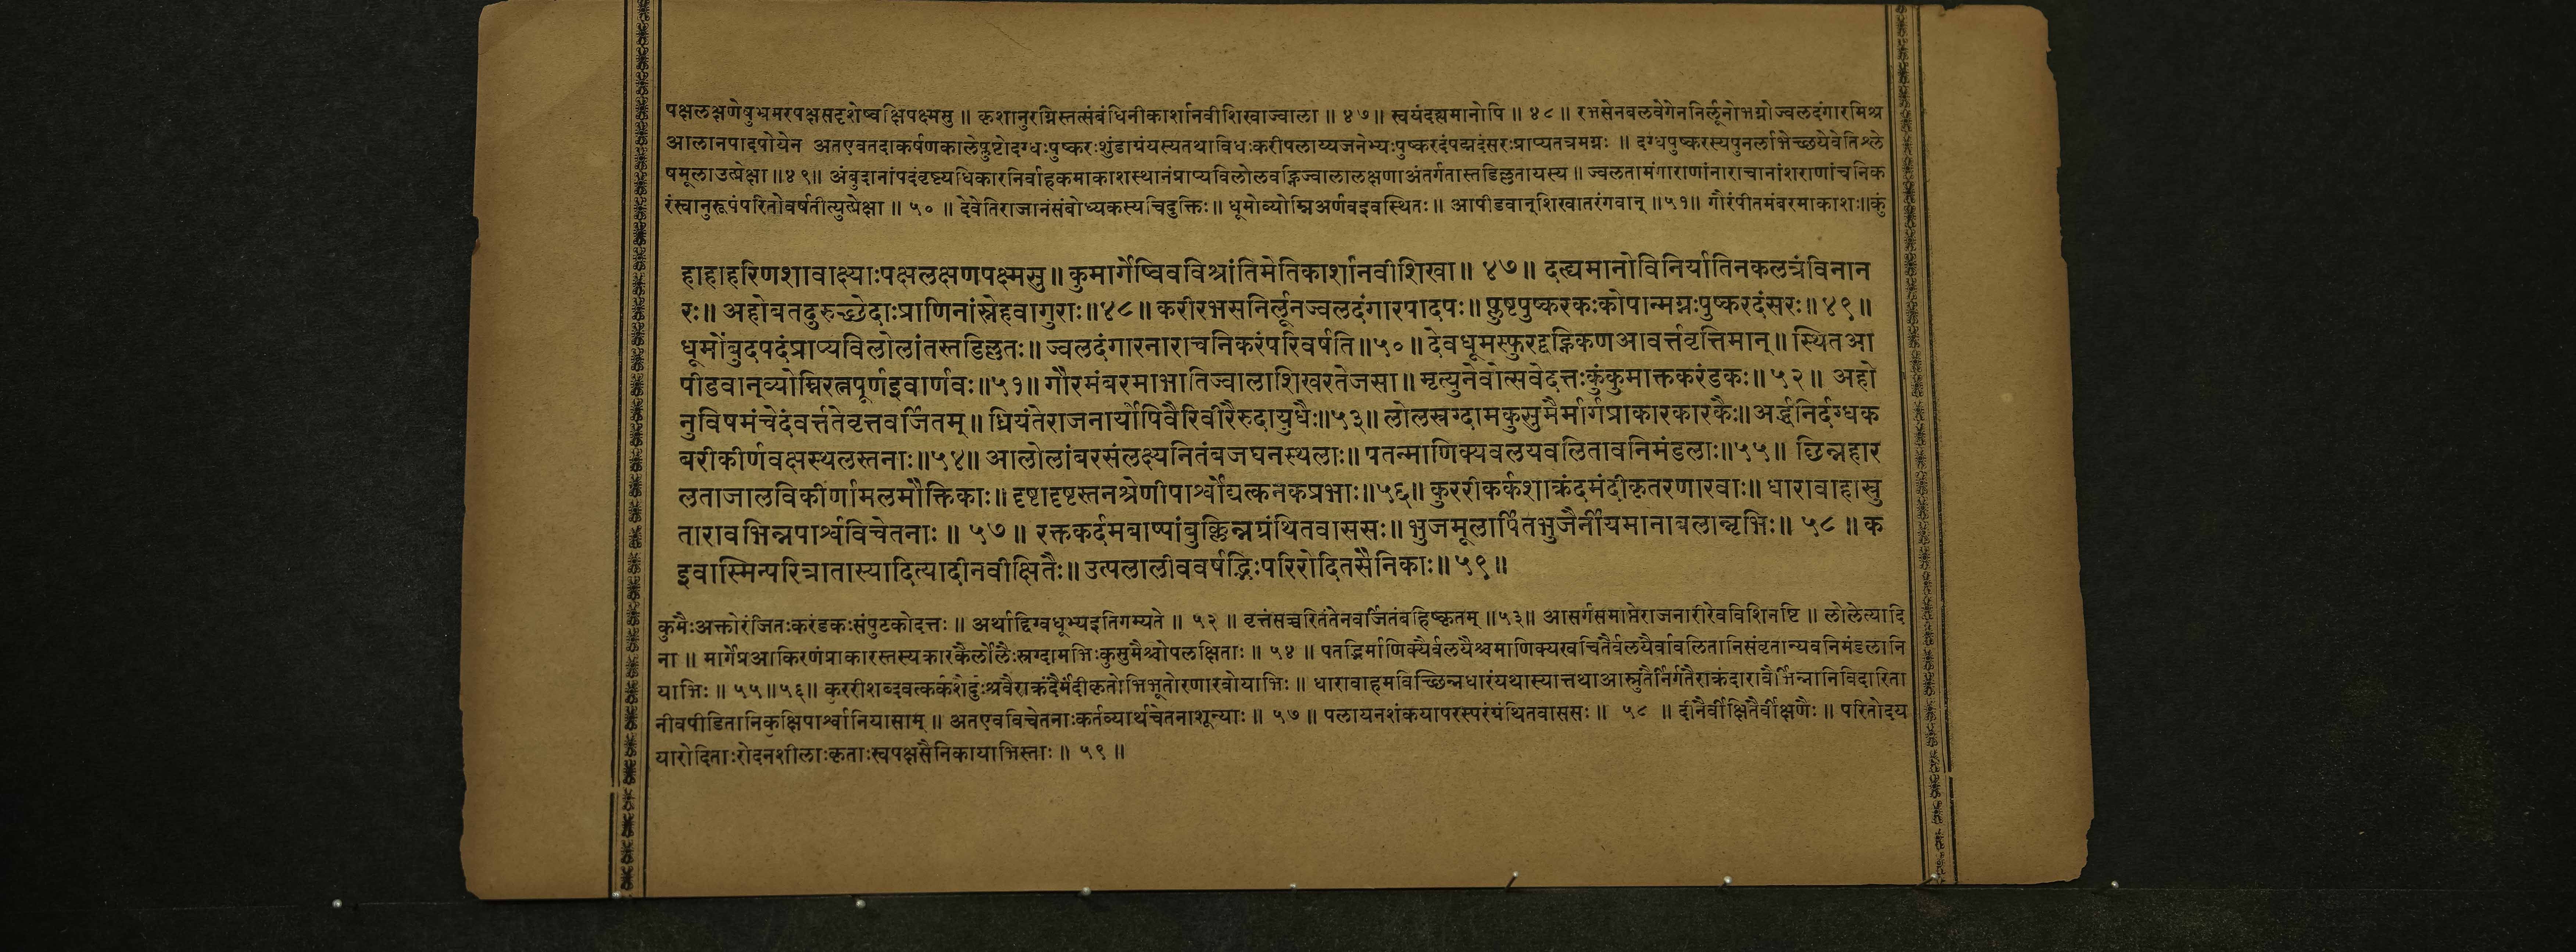 पक्षलक्षणेषुभ्रमरपक्षसदृशेष्वक्षिपक्ष्मसु ॥ कृशानुरग्निस्तत्संबंधिनीकार्शानवीशिखाज्वाला ॥ ४७ ॥ स्वयंदह्यमानोपि ॥ ४८ ॥ रभसेनबलवेगेननिर्लूनोभग्नोज्वलदंगारमिश्र
आलानपादपोयेन अतएवतदाकर्षणकालेप्लुष्टोदग्धःपुष्करःशुंडाग्रंयस्यतथाविधःकरीपलाय्यजनेभ्यःपुष्करदंपद्मदंसरःप्राप्यतत्रमग्नः ॥ दग्धपुष्करस्यपुनर्लाभेच्छयेवेतिश्ले
षमूलाउत्प्रेक्षा ॥ ४९ ॥ अंबुदानांपदंवृष्ट्यधिकारनिर्वाहकमाकाशस्थानंप्राप्यविलोलवह्निज्वालालक्षणाअंतर्गतास्तडिल्लतायस्य ॥ ज्वलतामंगाराणांनाराचानांशराणांचनिक
रंस्वानुरूपंपरितोवर्षतीत्युत्प्रेक्षा ॥ ५० ॥ देवेतिराजानंसंबोध्यकस्यचिदुक्तिः ॥ धूमोव्योम्निअर्णवइवस्थितः ॥ आपीडवान्शिखातरंगवान् ॥ ५१ ॥ गौरंपीतमंबरमाकाशः ॥ कुं
हाहाहरिणशावाक्ष्याःपक्षलक्षणपक्ष्मसु ॥ कुमार्गेष्विवविश्रांतिमेतिकार्शानवीशिखा ॥ ४७ ॥ दह्यमानोविनिर्यातिनकलत्रंविनान
रः ॥ अहोबतदुरुच्छेदाःप्राणिनांस्नेहवागुराः ॥ ४८ ॥ करीरभसनिर्लूनज्वलदंगारपादपः ॥ प्लुष्टपुष्करकःकोपान्मग्नःपुष्करदंसरः ॥ ४९ ॥
धूमोंबुदपदंप्राप्यविलोलांतस्तडिल्लतः ॥ ज्वलदंगारनाराचनिकरंपरिवर्षति ॥ ५० ॥ देवधूमस्फुरद्वह्निकणआवर्त्तवृत्तिमान् ॥ स्थितआ
पीडवान्व्योम्निरत्नपूर्णइवार्णवः ॥ ५१ ॥ गौरमंबरमाभातिज्वालाशिखरतेजसा ॥ मृत्युनेवोत्सवेदत्तःकुंकुमाक्तकरंडकः ॥ ५२ ॥ अहो
नुविषमंचेदंवर्त्ततेवृत्तवर्जितम् ॥ ध्रियंतेराजनार्योपिवैरिवीरैरुदायुधैः ॥ ५३ ॥ लोलस्रग्दामकुसुमैर्मार्गप्राकारकारकैः ॥ अर्द्धनिर्दग्धक
बरीकीर्णवक्षस्थलस्तनाः ॥ ५४ ॥ आलोलांबरसंलक्ष्यनितंबजघनस्थलाः ॥ पतन्माणिक्यवलयवलितावनिमंडलाः ॥ ५५ ॥ छिन्नहार
लताजालविकीर्णामलमौक्तिकाः ॥ दृष्टादृष्टस्तनश्रेणीपार्श्वोद्यत्कनकप्रभाः ॥ ५६ ॥ कुररीकर्कशाक्रंदमंदीकृतरणारवाः ॥ धारावाहास्रु
तारावभिन्नपार्श्वविचेतनाः ॥ ५७ ॥ रक्तकर्दमबाष्पांबुक्लिन्नग्रंथितवाससः ॥ भुजमूलार्पितभुजैर्नीयमानाबलान्नृभिः ॥ ५८ ॥ क
इवास्मिन्परित्रातास्यादित्यादीनवीक्षितैः ॥ उत्पलालीववर्षद्भिःपरिरोदितसैनिकाः ॥ ५९ ॥
कुमैःअक्तोरंजितःकरंडकःसंपुटकोदत्तः ॥ अर्थाद्दिग्वधूभ्यइतिगम्यते ॥ ५२ ॥ वृत्तंसच्चरितंतेनवर्जितंबहिष्कृतम् ॥ ५३ ॥ आसर्गसमाप्तेराजनारीरेवविशिनष्टि ॥ लोलेत्यादि
ना ॥ मार्गेप्रआकिरणंप्राकारस्तस्यकारकैर्लोलैःस्रग्दामभिःकुसुमैश्चोपलक्षिताः ॥ ५४ ॥ पतद्भिर्माणिक्यैर्वलयैश्चमाणिक्यखचितैर्वलयैर्वावलितानिसंवृतान्यवनिमंडलानि
याभिः ॥ ५५ ॥ ५६ ॥ कुररीशब्दवत्कर्कशैर्दुःश्रवैराक्रंदैर्मंदीकृतोभिभूतोरणारवोयाभिः ॥ धारावाहमविच्छिन्नधारंयथास्यात्तथाआस्रुतैर्निर्गतैराक्रंदारावैर्भिन्नानिविदारिता
नीवपीडितानिकुक्षिपार्श्वानियासाम् ॥ अतएवविचेतनाःकर्तव्यार्थचेतनाशून्याः ॥ ५७ ॥ पलायनशंकयापरस्परंग्रंथितवाससः ॥ ५८ ॥ दीनैर्वीक्षितैर्वीक्षणैः ॥ परितोदय
यारोदिताःरोदनशीलाःकृताःस्वपक्षसैनिकायाभिस्ताः ॥ ५९ ॥